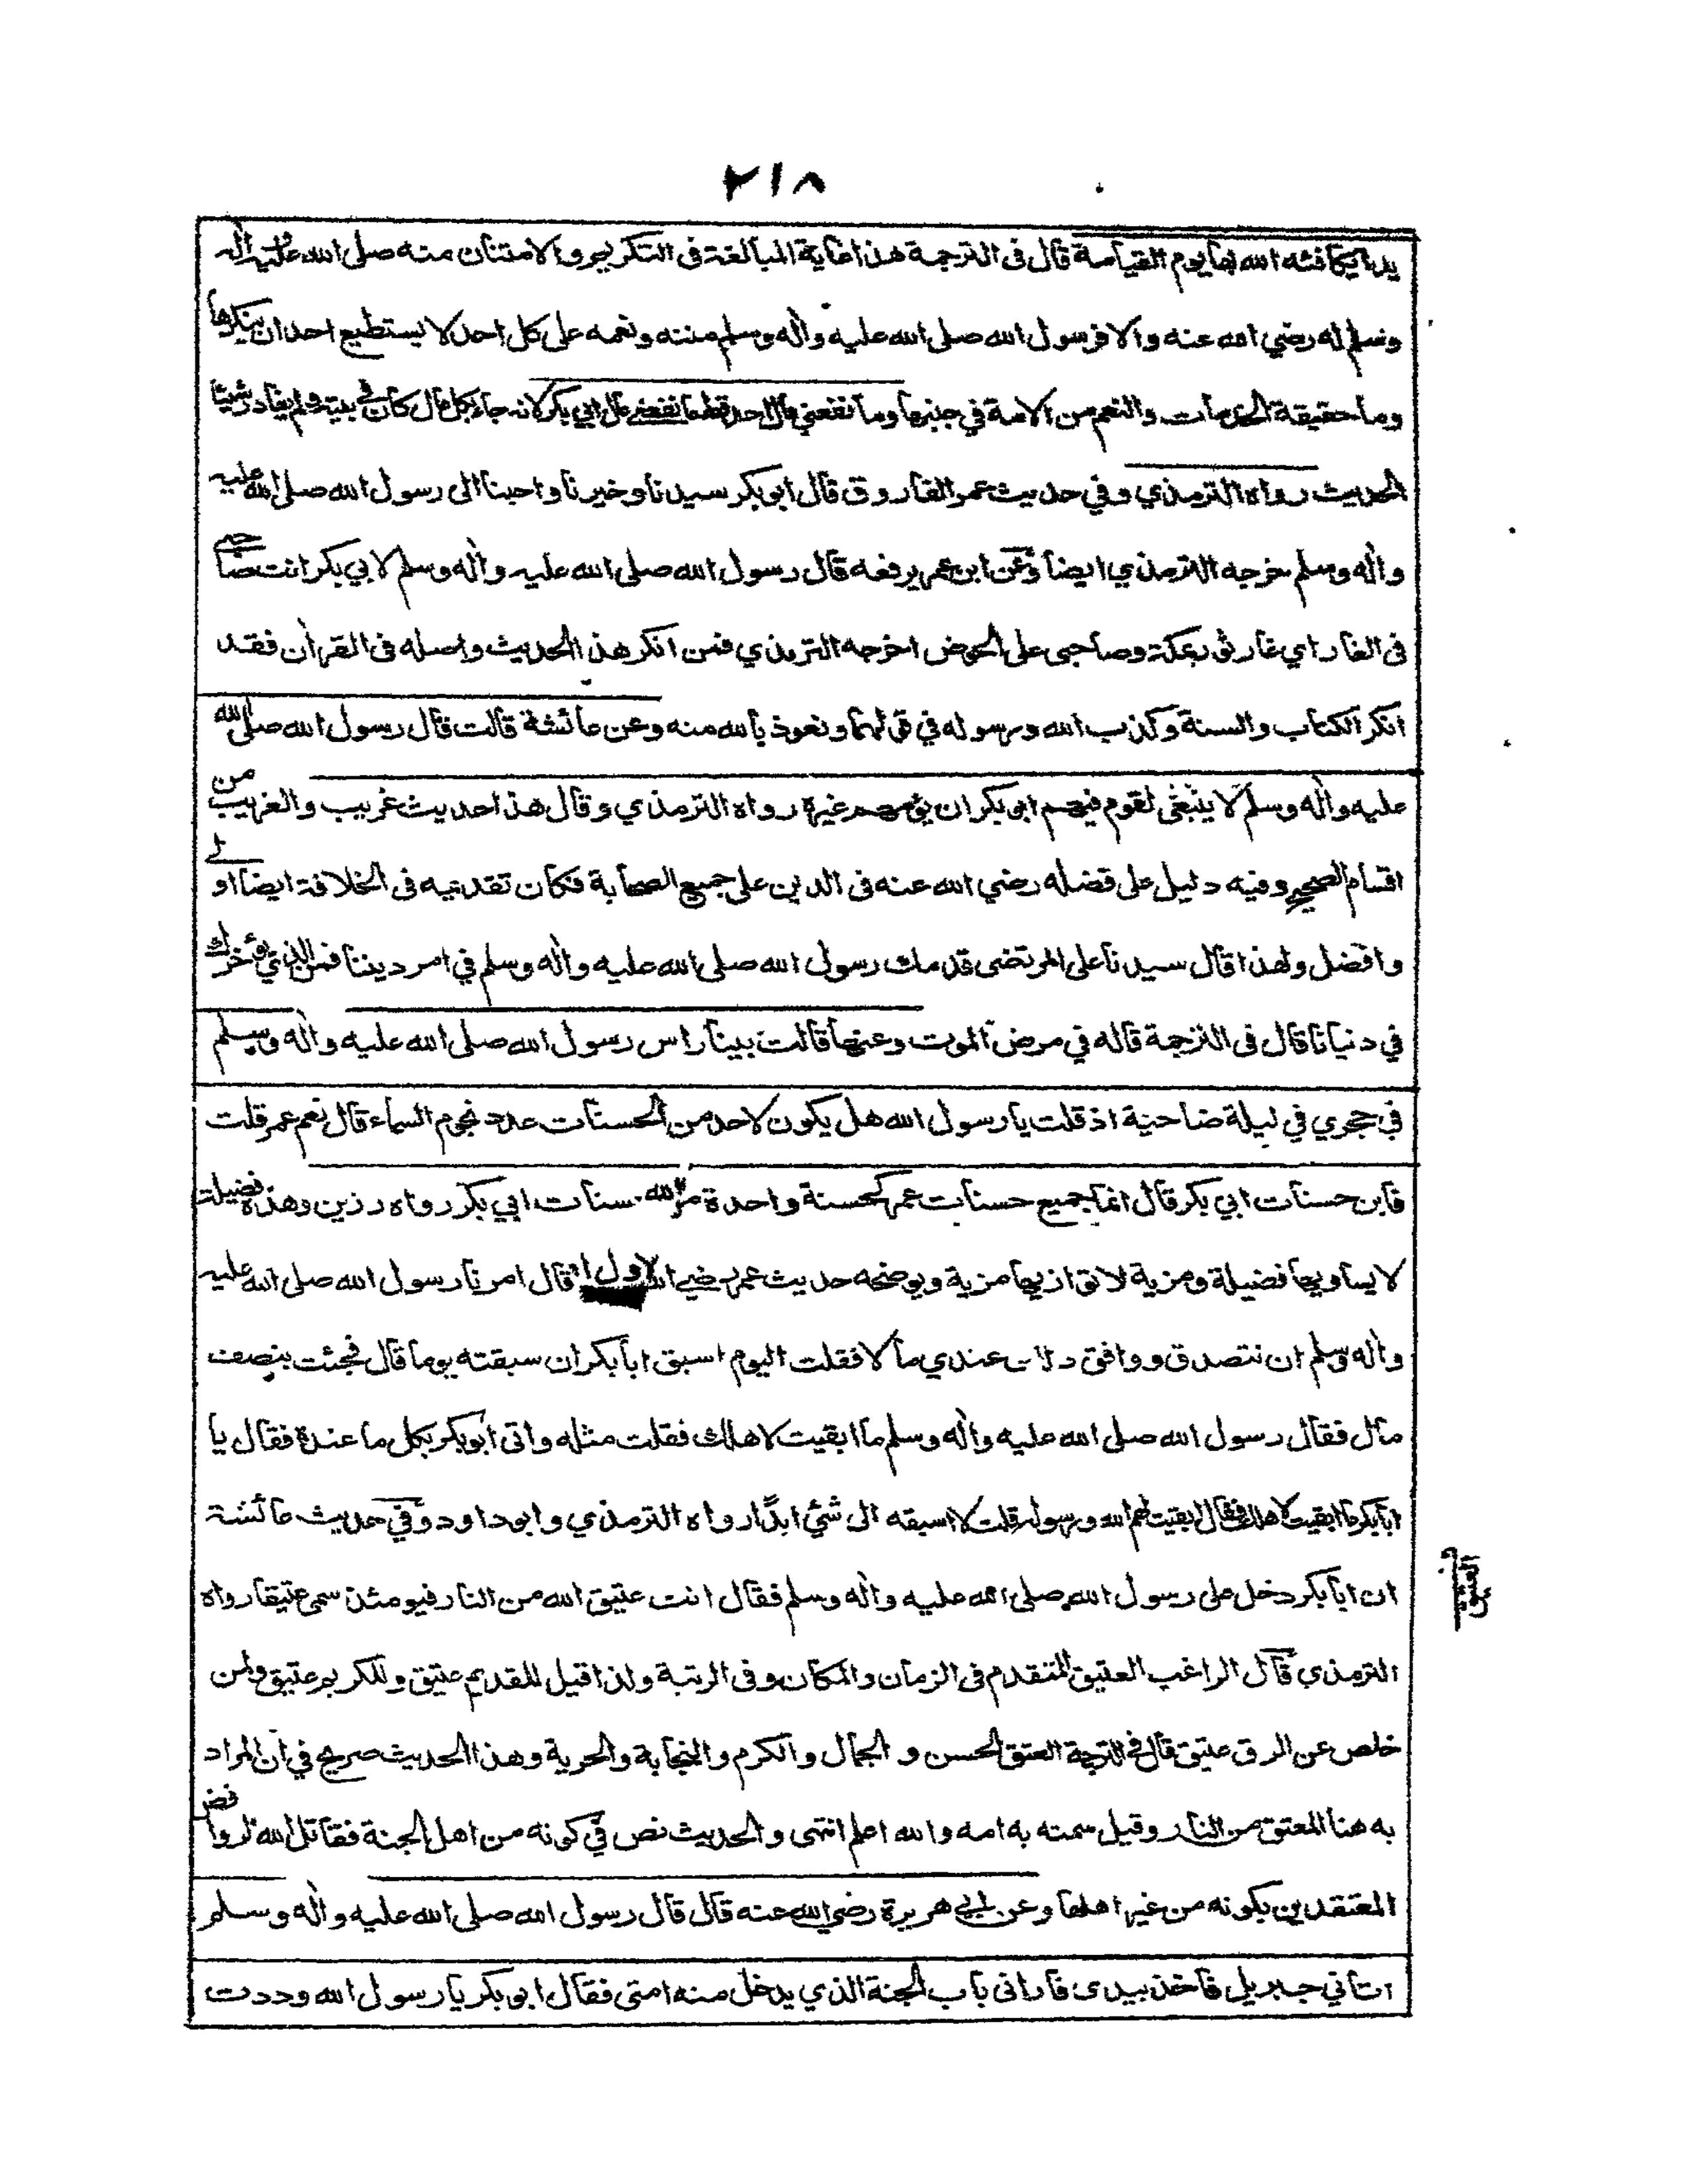 ٢١٨
يدا يكافئه الله بها يوم القيامة قال فى الترجمة هذا غاية المبالغة فى التكريم والامتنان منه صلى الله عليه واله
وسلم له رضي الله عنه والا فرسول الله صلى الله عليه واله وسلم منته ونعمه على كل احد لا يستطيع احد ان ينكرها
وما حقيقة الخدمات والنعم من الامة في جنبها وما نفعني مال احد قط ما نفعني مال ابي بكر لانه جاء بكل مال كان في بيته ولم يغادر شيئا
الحديث رواه الترمذي وفي حديث عمر الفاروق قال ابو بكر سيدنا وخيرنا واحبنا الى رسول الله صلى الله عليه
واله وسلم خرجه الترمذي ايضا وعن ابن عمر يرفعه قال رسول الله صلى الله عليه واله وسلم لابي بكر انت صاحبي
فى الغار اي غار ثور بمكة وصاحبى على الحوض اخرجه الترمذي فمن انكر هذا الحديث واصله فى القران فقد
انكر الكتاب والسنة وكذب الله ورسوله في قولهما ونعوذ بالله منه وعن عائشة قالت قال رسول الله صلى الله
عليه واله وسلم لا ينبغى لقوم فيهم ابو بكر ان يؤمهم غيره رواه الترمذي وقال هذا حديث غريب والغريب من
اقسام الصحيح وفيه دليل على فضله رضي الله عنه فى الدين على جميع الصحابة فكان تقديمه فى الخلافة ايضا اولى
وافضل ولهذا قال سيدنا على المرتضى قدمك رسول الله صلى الله عليه واله وسلم في امر ديننا فمن الذي يؤخرك
في دنيانا قال فى الترجمة قاله في مرض الموت وعنها قالت بينا راس رسول الله صلى الله عليه واله وسلم
في حجري في ليلة ضاحية اذ قلت يا رسول الله هل يكون لاحد من الحسنات عدد نجوم السماء قال نعم عمر قلت
فاين حسنات ابي بكر قال انما جميع حسنات عمر كحسنة واحدة من حسنات ابي بكر رواه رزين وهذه فضيلة
لا يساويها فضيلة ومزية لا توازيها مزية ويوضحه حديث عمر رضي الله قال امرنا رسول الله صلى الله عليه
واله وسلم ان نتصدق ووافق ذلك عندي مالا فقلت اليوم اسبق ابا بكر ان سبقته يوما قال فجئت بنصف
مال فقال رسول الله صلى الله عليه واله وسلم ما ابقيت لاهلك فقلت مثله واتى ابو بكر بكل ما عنده فقال يا
ابا بكر ما ابقيت لاهلك فقال ابقيت لهم الله ورسوله قلت لا اسبقه الى شيء ابدا رواه الترمذي وابو داود وفي حديث عائشة
ان ابا بكر دخل على رسول الله صلى الله عليه واله وسلم فقال انت عتيق الله من النار فيومئذ سمى عتيقا رواه
الترمذي قال الراغب العتيق المتقدم فى الزمان والمكان وفى الرتبة ولذا قيل للقديم عتيق وللكريم عتيق ولمن
خلص عن الرق عتيق قال في الترجمة العتق الحسن و الجمال والكرم والنجابة والحرية وهذا الحديث صريح في ان المراد
به هنا المعتق من النار وقيل سمته به امه والله اعلم انتهى والحديث نص في كونه من اهل الجنة فقاتل الله الروافض
المعتقدين بكونه من غير اهلها وعن ابي هريرة رضي الله عنه قال قال رسول الله صلى الله عليه واله وسلم
اتاني جبريل فاخذ بيدى فارانى باب الجنة الذي يدخل منه امتى فقال ابو بكر يا رسول الله وددت